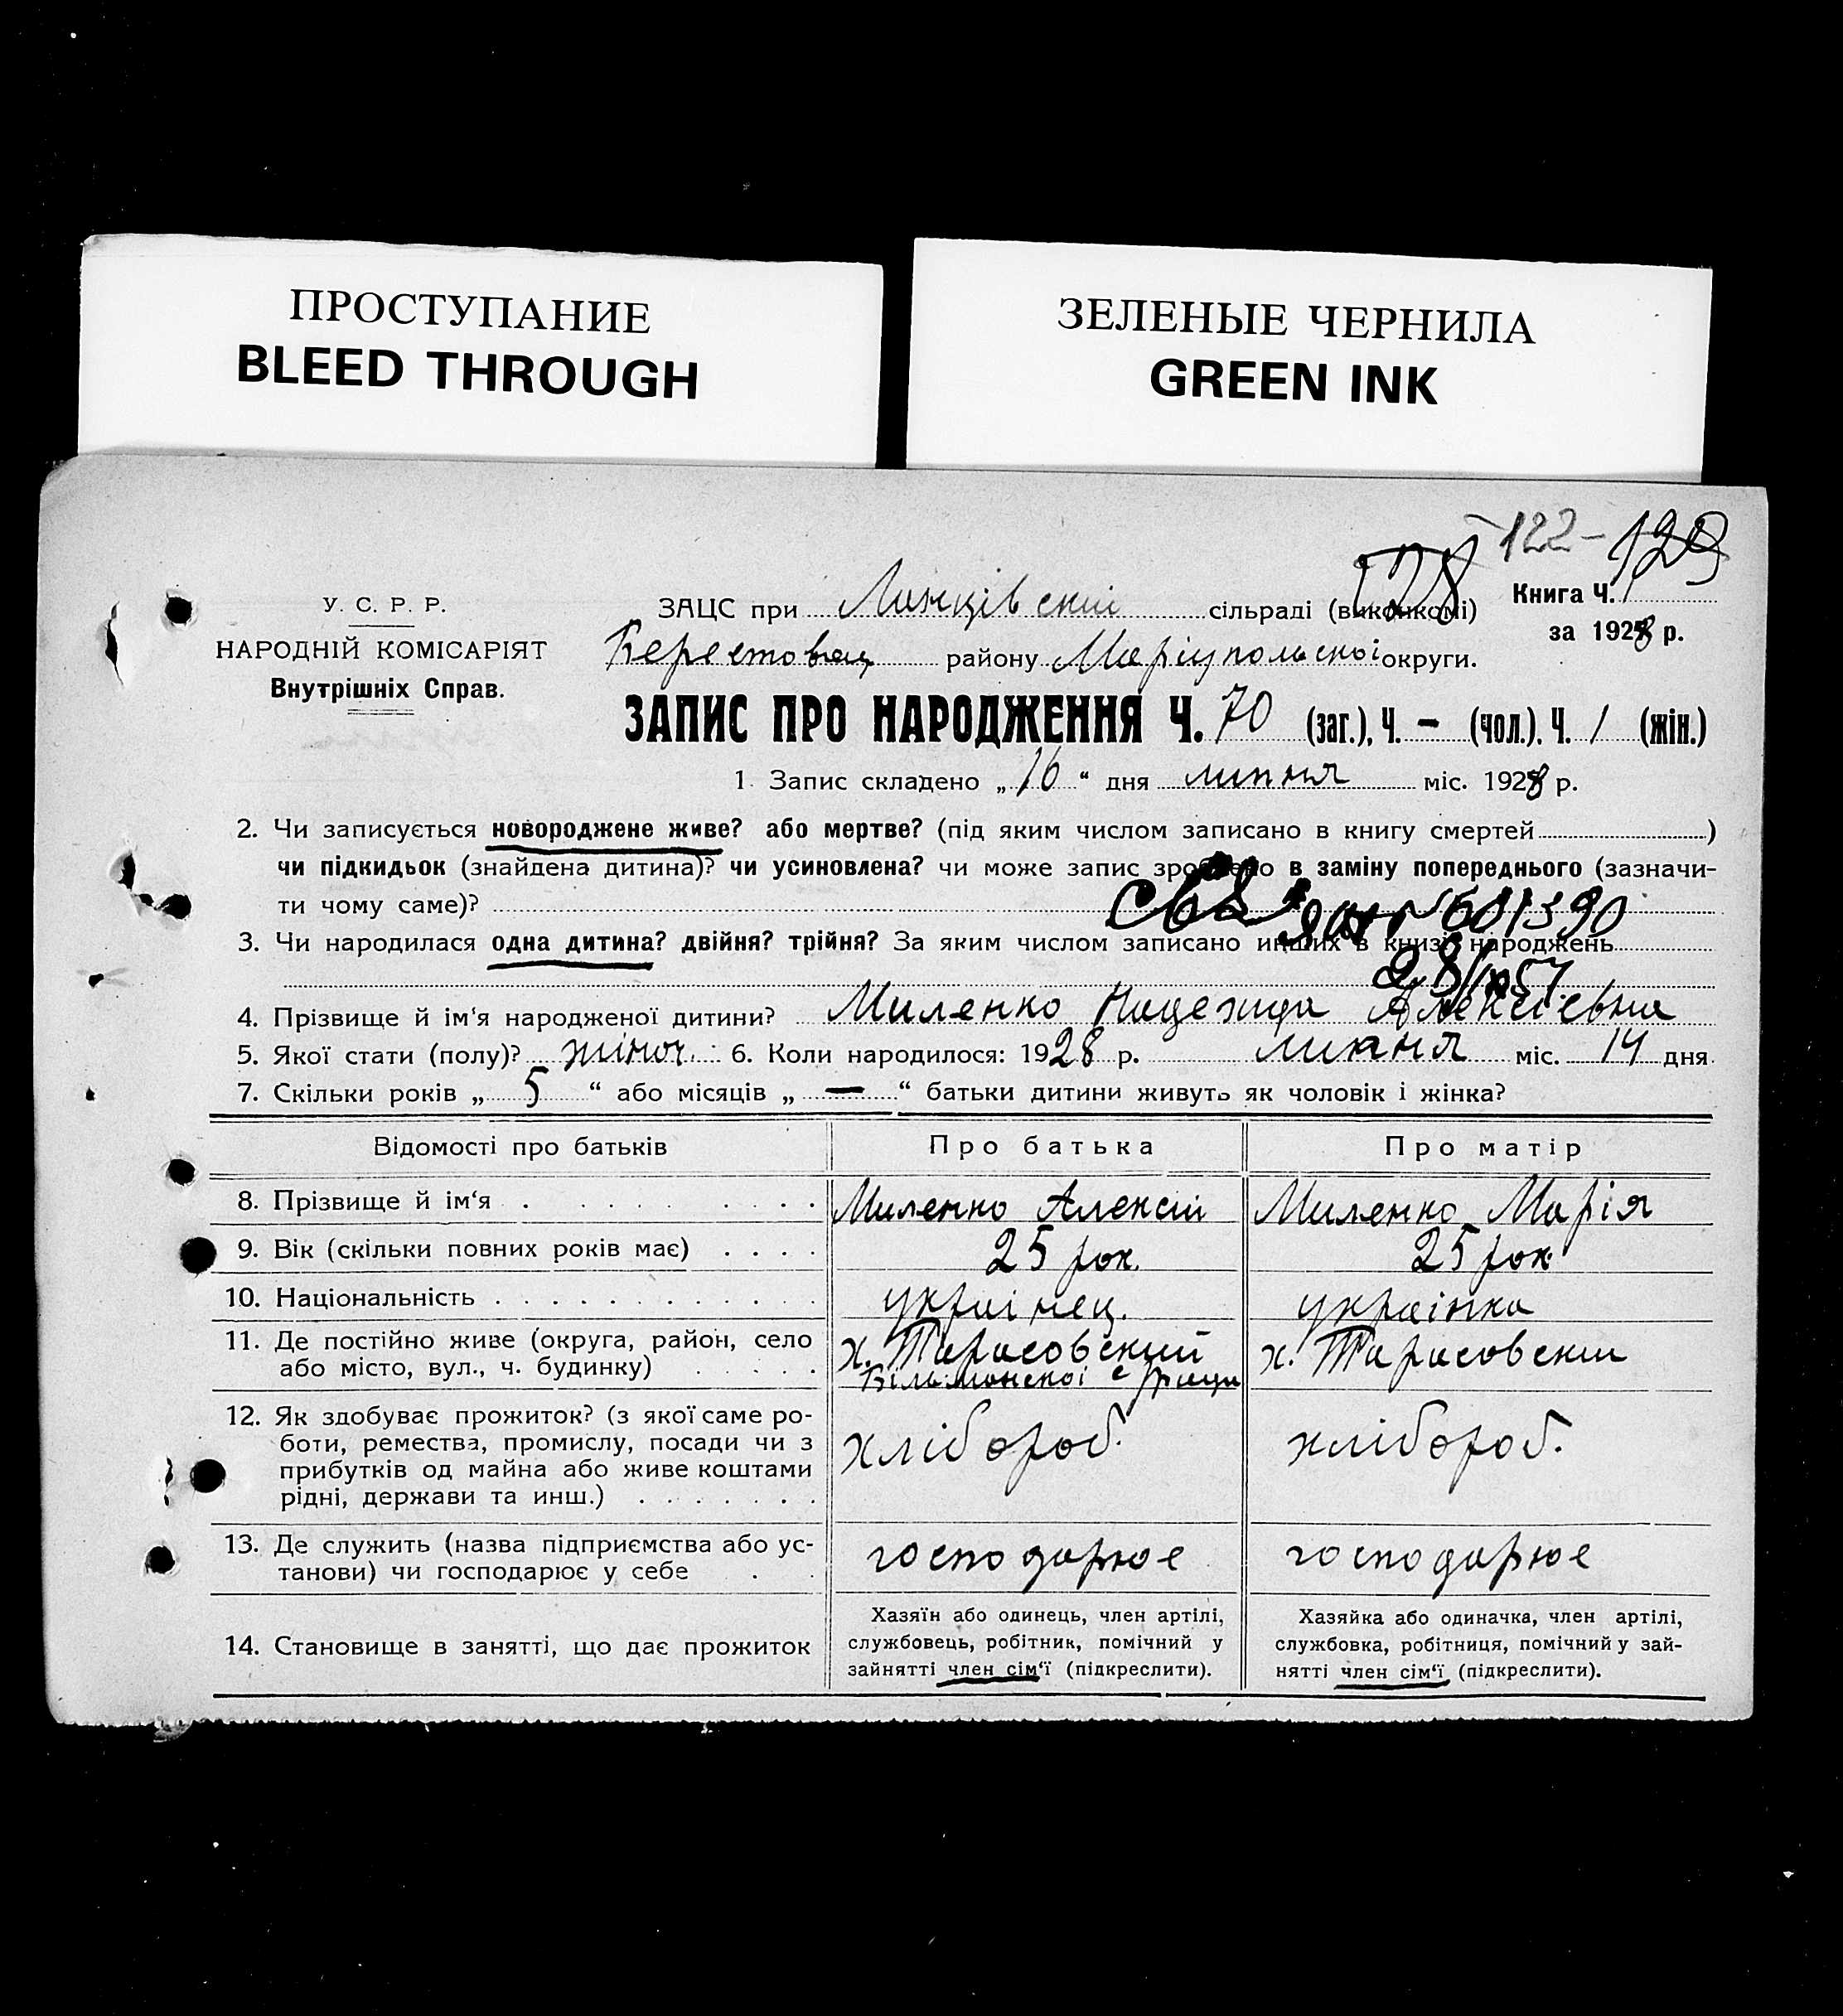 ПРОСТУПАНИЕ
BLEED THROUGH
ЗЕЛЕНЫЕ ЧЕРНИЛА
GREEN INK
122 - 129
128
У. С. Р. Р.
НАРОДНІЙ КОМІСАРІЯТ
Внутрішніх Справ.
ЗАЦС при сільраді (виконкомі)
Книга Ч. 1
за 1928 р.
району Маріупольскоі округи.
ЗАПИС ПРО НАРОДЖЕННЯ Ч. 70 (заг.), Ч. – (чол.). Ч. / (жін.)
1. Запис складено „16“ дня липня міс. 1928 р.
2. Чи записується новороджене живе? або мертве? (під яким числом записано в книгу смертей)
чи підкидьок (знайдена дитина)? чи усиновлена? чи може запис зроблено в заміну попереднього (зазначи-
ти чому саме)?
3. Чи народилася одна дитина? двійня? трійня? За яким числом записано инших в книзі народжень
4. Прізвище й ім‘я народженої дитини? Миленко Надежда Алексіевна
5. Якої стати (полу)? жіноч. 6. Коли народилося: 1928 р. липня міс. 14 дня
7. Скільки років „ 5 “ або місяців „ — “ батьки дитини живуть як чоловік і жінка?
Відомості про батьків Про батька Про матір
8. Прізвище й ім‘я Миленко Алексій Миленко Марія
9. Вік (скільки повних років має) 25 рок. 25 рок.
10. Національність украінец. украінка
11. Де постійно живе (округа, район, село х. Тарасовский х. Тарасовский
або місто, вул., ч. будинку)
12. Як здобуває прожиток? (з якої саме ро-
боти, ремества, промислу, посади чи з хлібороб. хлібороб.
прибутків од майна або живе коштами
рідні, держави та инш.)
13. Де служить (назва підприємства або ус- господарюе господарюе
танови) чи господарює у себе
14. Становище в занятті, що дає прожиток
Хазяїн або одинець, член артілі,
службовець, робітник, помічний у
зайнятті член сім‘ї (підкреслити).
Хазяйка або одиначка, член артілі,
службовка, робітниця, помічний у зай-
нятті член сім‘ї (підкреслити).